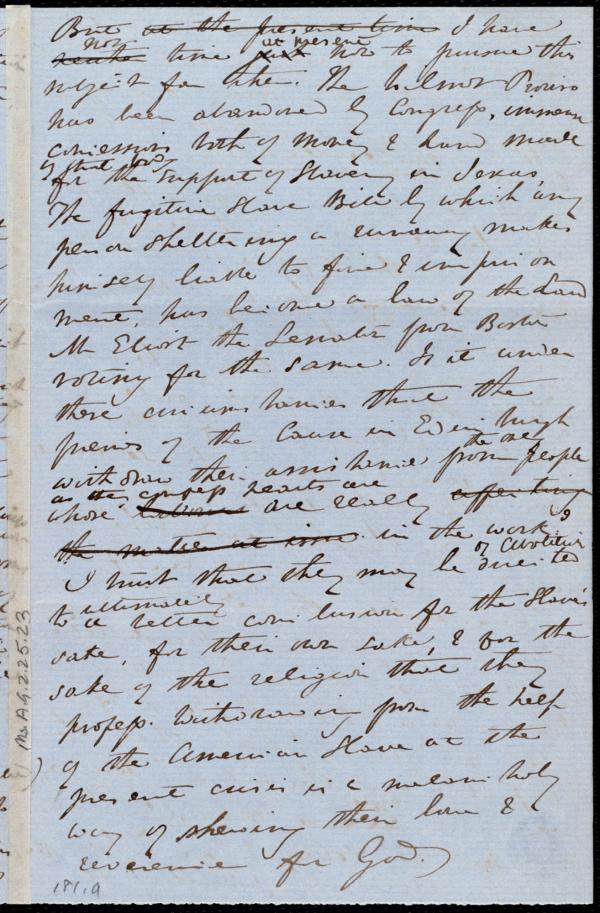 But at the present time I have
not time at present now to pursue this
subject farther. The Wilmot Proviso
has been abandoned by Congress, immense
concessions both of money & land made
by that body
for the support of Slavery in Texas,
The fugitive Slave Bill by which any
person sheltering a runaway makes
himself liable to fine & imprison
ment, has become a law of the Land
Mr Eliot the Senator from Boston
voting for the same. Is it under
these circumstances that the
friends of the Cause in Edinburgh
withdraw their assistance from the only people
as whose hearts are
are really
the matter at issue in the work
of Abolition
I trust that they may be directed
ultimately
to a better conclusion for the Slave's
sake, for their own sake, & for the
sake of the religion that they
profess. Withdrawing from the help
of the American Slave at the
present crisis is a melancholy
way of shewing their love &
reverence for God.)
Ms A.9.2.25.23
181.9